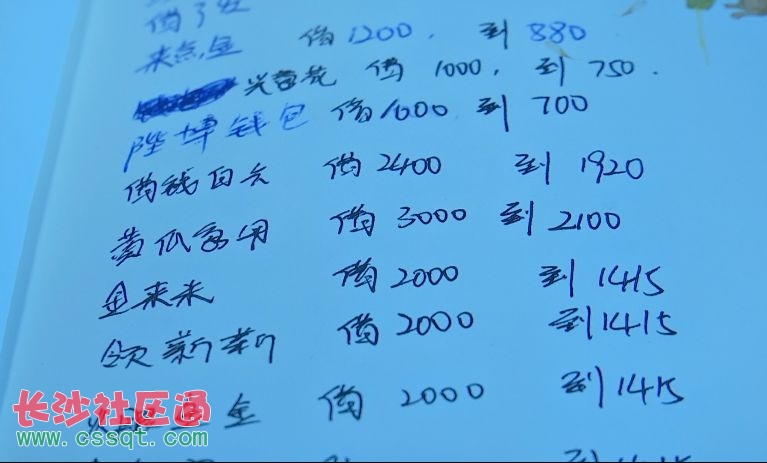 来点金 借1200, 到880
兴荟花 借1000, 到750.
陛博钱包 借1000 到700
借钱白云 借2400 到1920
黄瓜家用 借3000 到2100
金来米 借2000 到1415
领薪薪 借2000 到1415
金 借2000 到1415
长沙社区通
www.cssqt.com